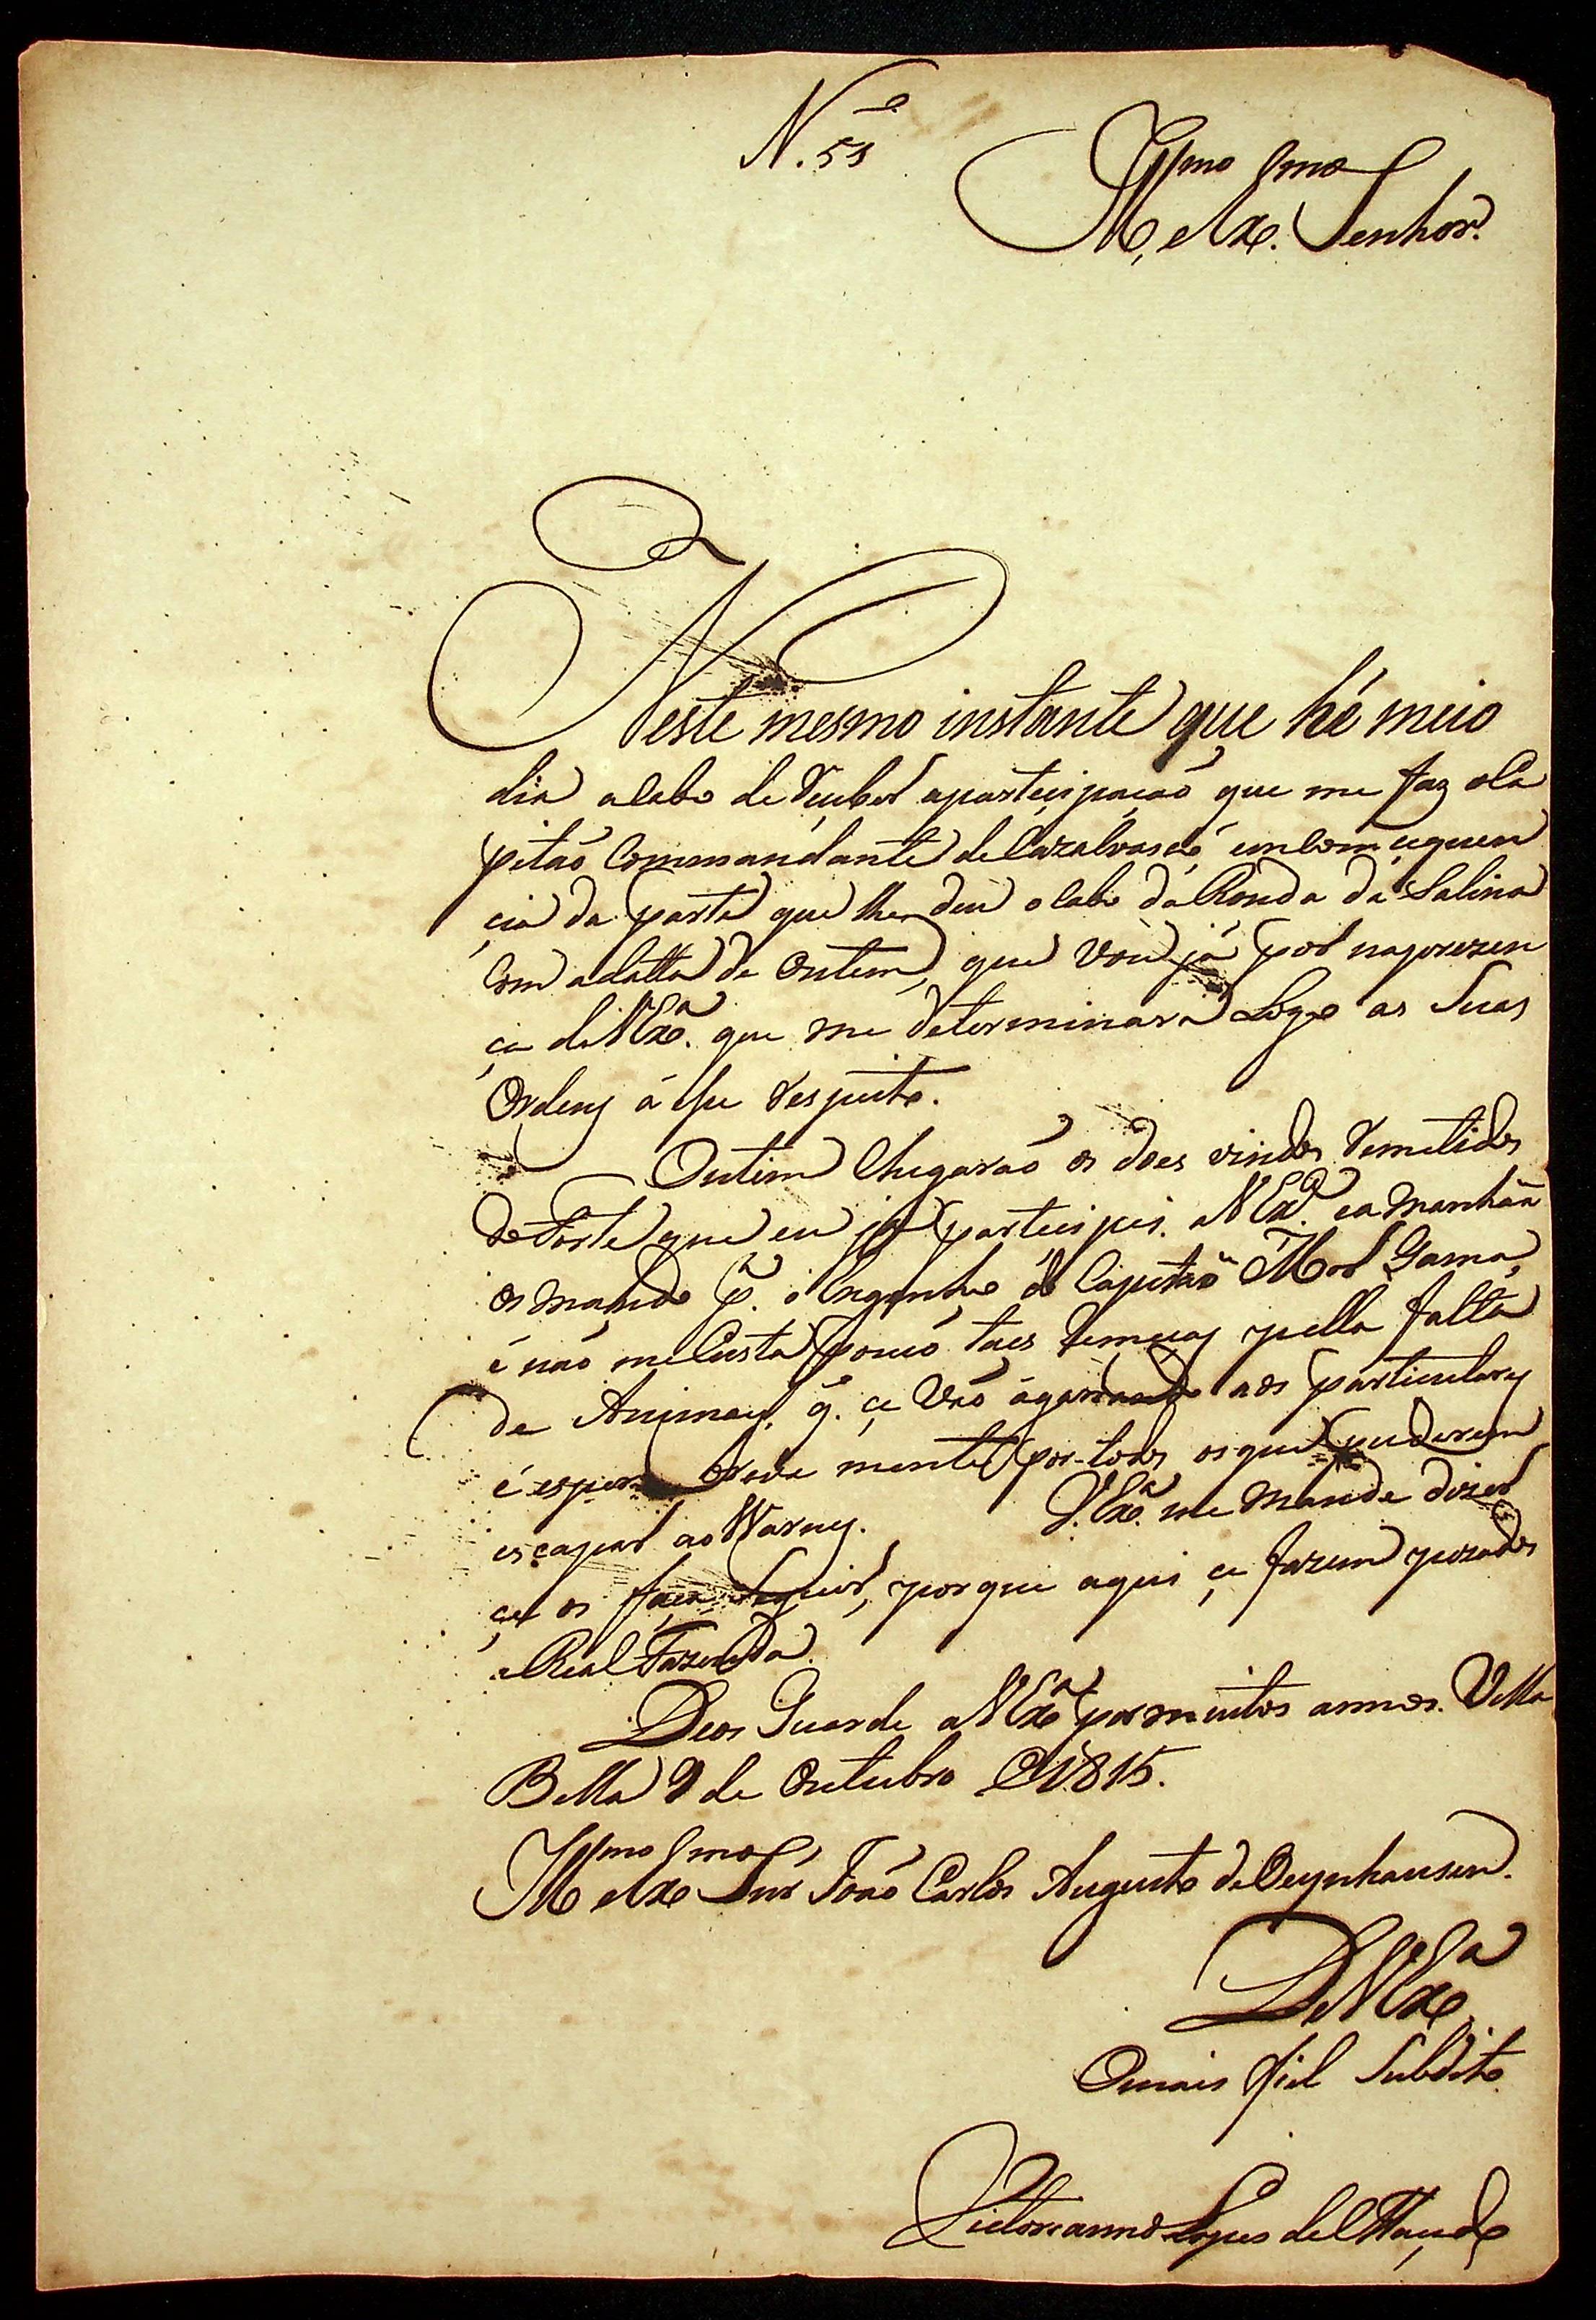 N.º 51
Ill.mo e Ex.mo Senhor.
Neste mesmo instante que hé meio
dia acabo de reçeber aparteçipaçaõ que me faz oCa
pitaõ Commandante deCazalvasco, em Comcequen
çia da parte que lhe deu o Cabo da Ronda da Salina
Com adatta de Ontem, que vou já por naprezen
ça deV.Ex.ª que me determinará Logo as Suas
Ordens á esse respeito.
Ontem Chegaraõ os does vindos remetidos
do Forte que eu já parteçipei aV.Ex.ª eamanhãa
os mando p.ª o Engenho do Capitaõ Mor Gama,
é naõ meCusta pouco taes remeças pella falta
de Animaes, q. çe vaõ agarrando aos particulares
é espero breve mente por todos os que puderem
escapar ao
V.Ex.ª me mande dizer
çe os faça Seguir, porque aqui çe fazem pezados
aReal Fazenda.
Deos Guarde aV.Ex.ª por muitos annos. Villa
Bella 9 de Outubro de1815.
Ill.mo e Ex.mo Snr João Carlos Augusto deOeynhausen.
DeV.Ex.ª
Omais fiel Subdito
Victorianno Lopes deMaçedo